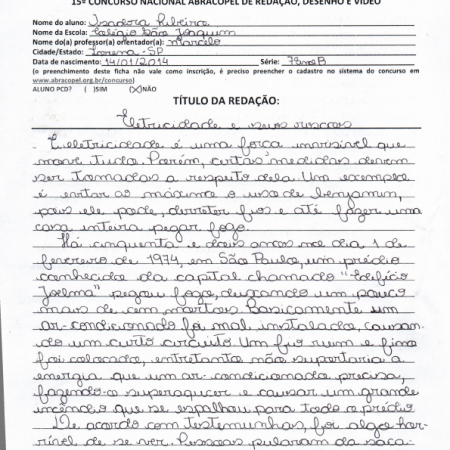 15º CONCURSO NACIONAL ABRACOPEL DE REDAÇÃO, DESENHO E VÍDEO
Nome do aluno: Isadora Ribeiro
Nome da Escola: Colégio São Joaquim
Nome do(a) professor(a) orientador(a): Marcelo
Cidade/Estado: Lorena - SP
Data de nascimento: 14/01/2014 Série: 7º ano B
(o preenchimento deste ficha não vale como inscrição, é preciso preencher o cadastro no sistema do concurso em
www.abracopel.org.br/concurso)
ALUNO PCD? ( )SIM (X)NÃO
TÍTULO DA REDAÇÃO:
Eletricidade e seus riscos
A eletricidade é uma força invisível que
move tudo. Porém, certas medidas devem
ser tomadas a respeito dela. Um exemplo
é evitar ao máximo o uso de benjamin,
pois ele pode, derreter fios e até fazer uma
casa inteira pegar fogo.
Há cinquenta e dois anos no dia 1 de
fevereiro de 1974, em São Paulo, um prédio
conhecido da capital chamado "Edifício
Joelma" pegou fogo, deixando um pouco
mais de cem mortos. Basicamente um
ar-condicionado foi mal instalado, causan-
do um curto circuito. Um fio ruim e fino
foi colocado, entretanto não suportaria a
energia que um ar-condicionado precisa,
fazendo-o superaquecer e causar um grande
incêndio que se espalhou para todo o prédio
De acordo com testemunhas, foi algo hor-
rível de se ver. Pessoas pularam da saca-